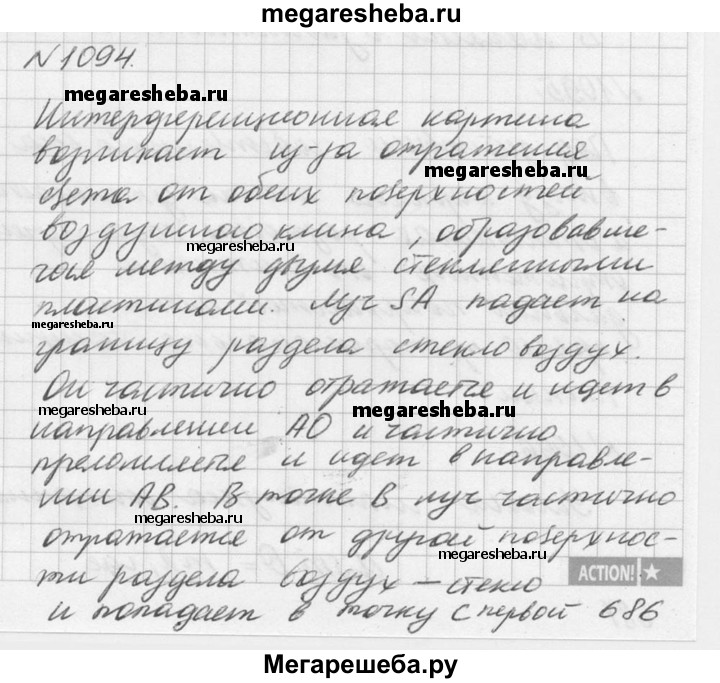 megaresheba.ru
N 1094.
megaresheba.ru
Интерференционная картина
возникает из-за отражения
megaresheba.ru
света от обеих поверхностей
воздушного клина, образовавше-
megaresheba.ru
megaresheba.ru
гося между двумя стеклянными
пластинами. Луч SA падает на
megaresheba.ru
границу раздела стекло воздух.
Он частично отражается и идет в
megaresheba.ru
megaresheba.ru
направлении AO и частично
преломляется и идет в направле-
нии AB. В точке B луч частично
megaresheba.ru
отражается от другой поверхнос-
megaresheba.ru
ти раздела воздух – стекло
ACTION!
и попадает в точку C первой 686
Мегарешеба.ру